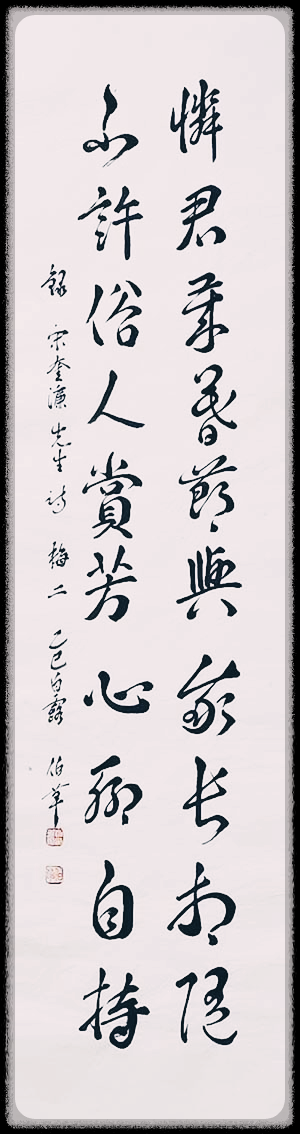 憐君歲暮節與我長相隨
不許俗人賞芳心聊自持
錄 宋奎濂先生詩 梅二 乙巳白露 伯草